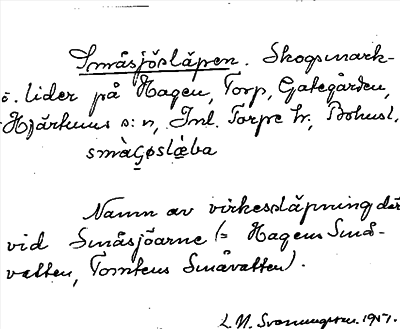 Småsjösläpen. Skogsmark-
o. lider på Hagen, Torp, Gategården,
Hjärtums s:n, Inl. Torpe hr, Bohusl.
småçøslæba
Namn av virkessläpning där
vid Småsjöarne (= Hagens Små-
vatten, Tomtens Småvatten).
L. N. Svanungsson. 1917.